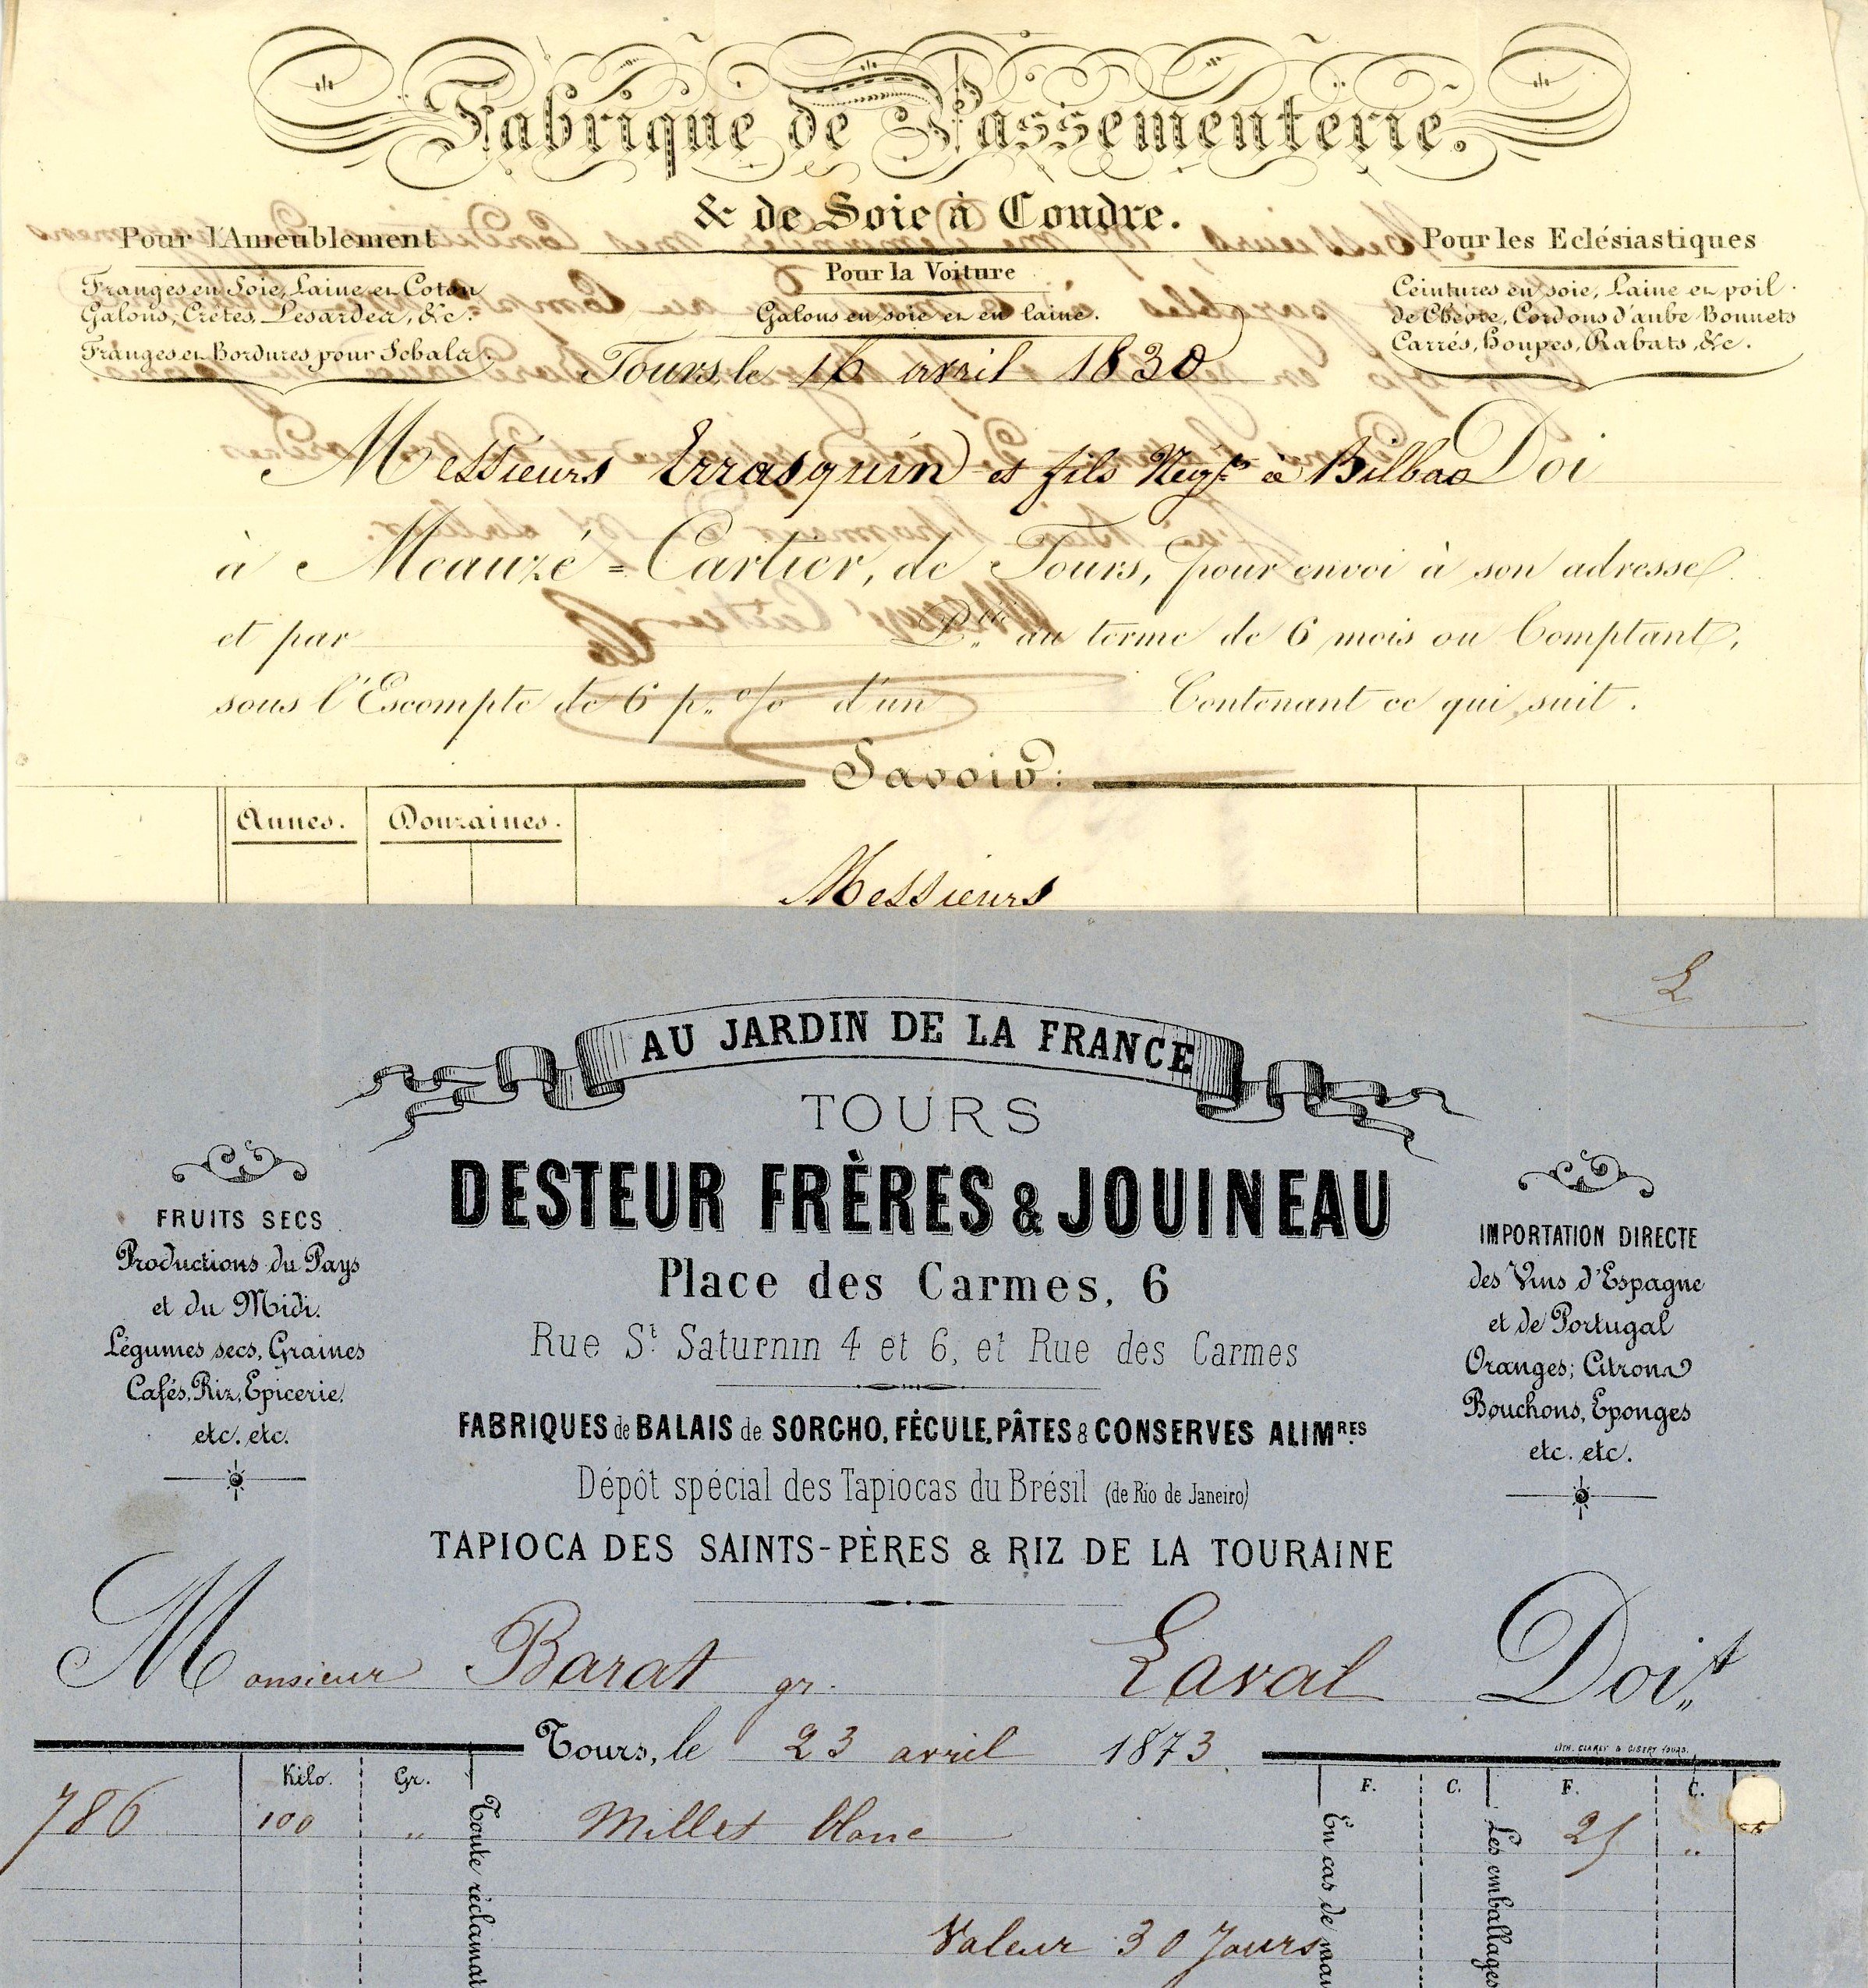 Fabrique de Passementerie.
& de Soie à Coudre.
Pour l'Ameublement
Franges en Soie, Laine et Coton
Galons, Crêtes, Lesardes, &c.
Franges et Bordures pour Schals.
Pour la Voiture
Galons en soie et en laine.
Pour les Eclésiastiques
Ceintures en soie, Laine et poil
de Chèvre, Cordons d'aube Bonnets
Carrés, Houpes, Rabats, &c.
Tours, le 16 avril 1830
Messieurs Errasquin et fils Negts à Bilbao Doi
à Meauzé=Cartier, de Tours, pour envoi à son adresse
et par au terme de 6 mois ou Comptant,
sous l'Escompte de 6 p.% d'un Contenant ce qui suit.
Savoir:
Aunes. Douzaines.
Messieurs
L
AU JARDIN DE LA FRANCE
TOURS
DESTEUR FRÈRES & JOUINEAU
Place des Carmes, 6
Rue St Saturnin 4 et 6, et Rue des Carmes
FRUITS SECS
Productions du Pays
et du Midi.
Légumes secs, Graines
Cafés, Riz, Epicerie,
etc. etc.
IMPORTATION DIRECTE
des Vins d'Espagne
et de Portugal
Oranges; Citrons
Bouchons, Eponges
etc. etc.
FABRIQUES de BALAIS de SORGHO, FÉCULE, PÂTES & CONSERVES ALIMRES
Dépôt spécial des Tapiocas du Brésil (de Rio de Janeiro)
TAPIOCA DES SAINTS-PÈRES & RIZ DE LA TOURAINE
Monsieur Barat gr. Laval Doit
Tours, le 23 avril 1873
Kilo. Gr. F. C. F. C.
786 100 " Millet blanc 25 "
Valeur 30 Jours
Toute réclamat
En cas de
Les emballages